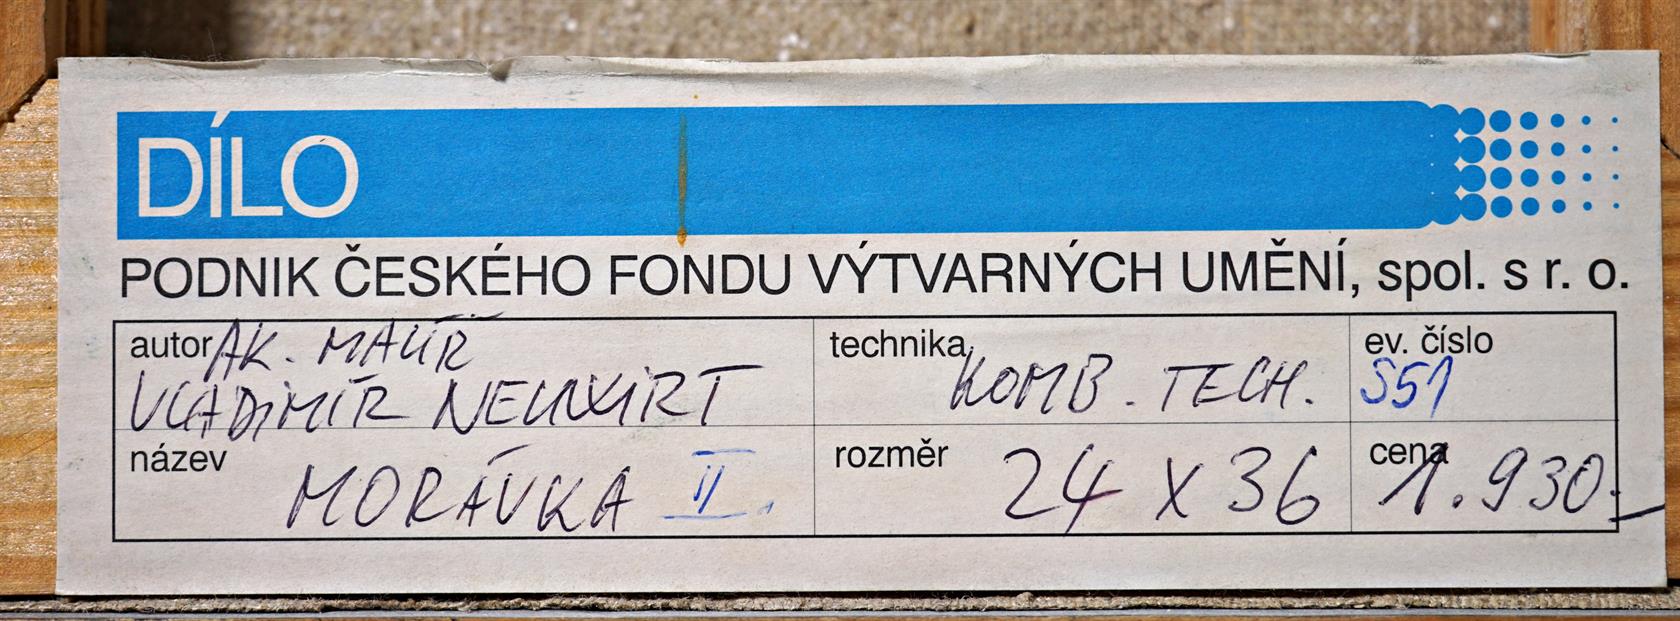 DÍLO
PODNIK ČESKÉHO FONDU VÝTVARNÝCH UMĚNÍ, spol. s r. o.
autor AK. MALÍŘ
VLADIMÍR NEUWIRT
technika KOMB. TECH.
ev. číslo
S51
název
MORÁVKA II.
rozměr 24 X 36
cena 1.930.-